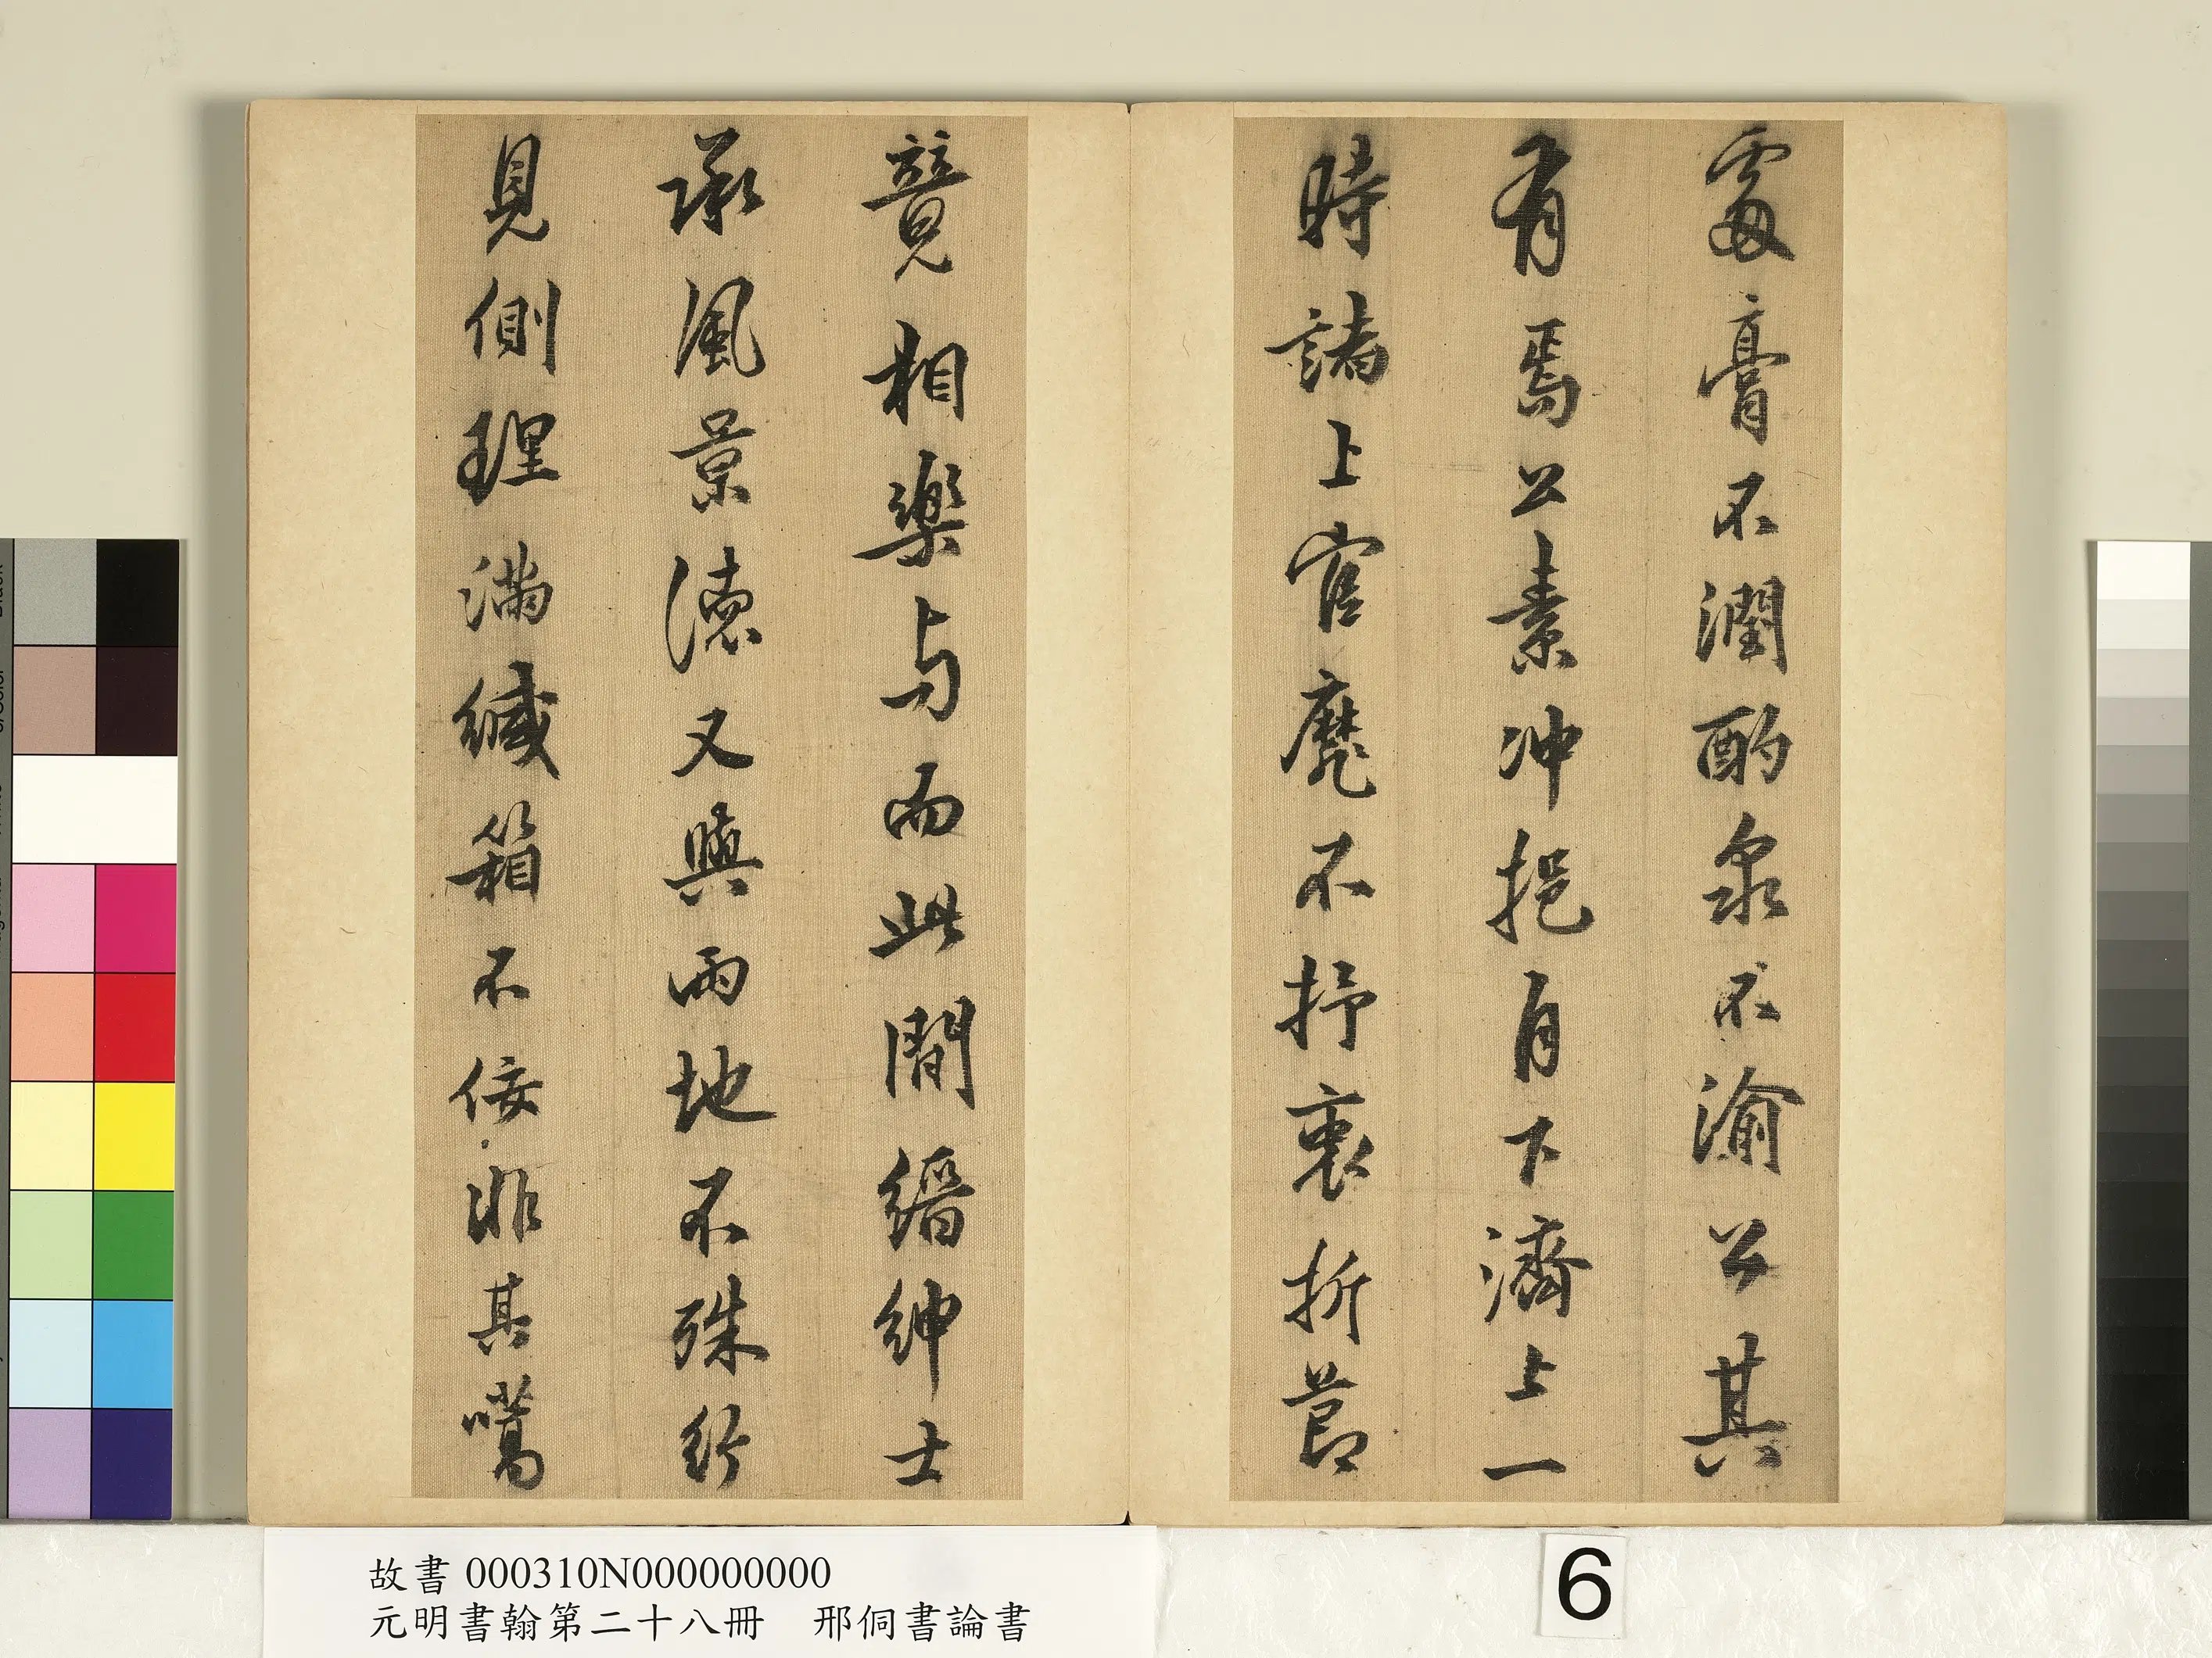 處膏不潤酌泉不渝公其
有焉公素冲挹自下濟上一
時諸上官靡不抒衷折節
競相樂與而此間縉紳士
承風景德又與兩地不殊行
見側理滿緘箱不佞非其嚆
故書 000310N000000000
元明書翰第二十八冊 邢侗書論書
6